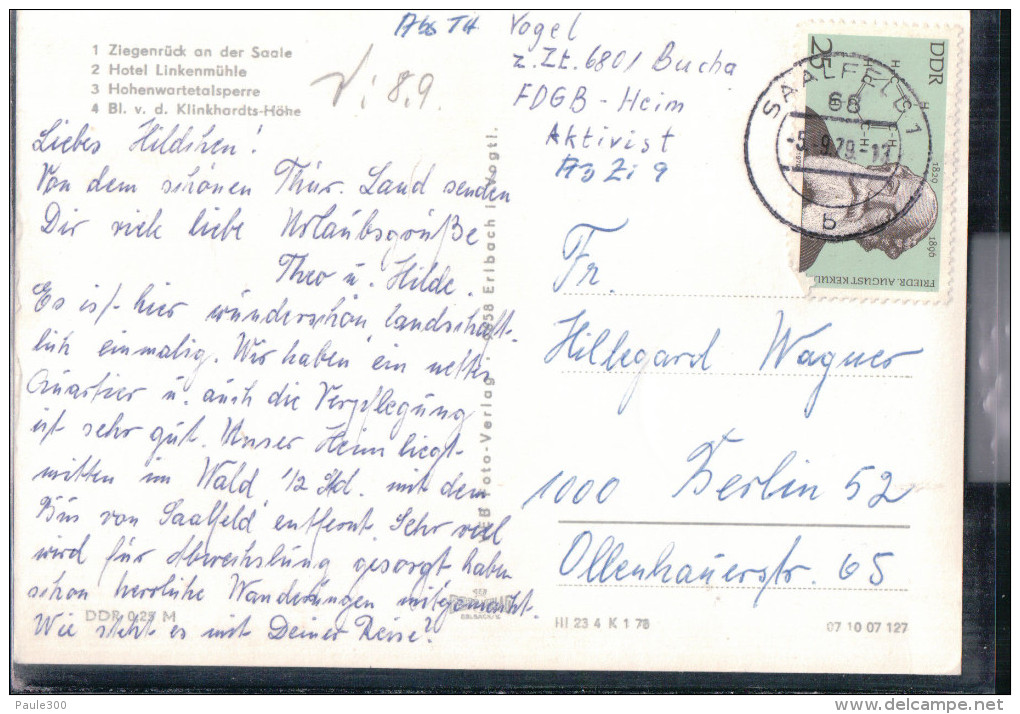 1 Ziegenrück an der Saale
2 Hotel Linkenmühle
3 Hohenwartetalsperre
4 Bl. v. d. Klinkhardts-Höhe
8.9.
Liebes Hildchen!
Von dem schönen Thür. Land senden
Dir viele liebe Urlaubsgrüße
Theo u. Hilde.
Es ist hier wunderschön, landschaft-
lich einmalig. Wir haben ein nettes
Quartier u. auch die Verpflegung
ist sehr gut. Unser Heim liegt
mitten im Wald, 1/2 Std. mit dem
Bus von Saalfeld entfernt. Sehr viel
wird für Abwechslung gesorgt, haben
schon herrliche Wanderungen mitgemacht.
Wie steht es mit Deiner Reise?
DDR 0,25 M
Foto-Verlag · 9958 Erlbach i. Vogtl.
Abs Th Vogel
z. Zt. 6801 Bucha
FDGB-Heim
Aktivist
Zi 9
DDR
25
1829
1896
FRIEDR. AUGUST KEKUL
SAALFELD 1
68
-5.-9.79.-13
b
Fr.
Hillegard Wagner
1000 Berlin 52
Ollenhauerstr. 65
III 23 4 K 1 78
07 10 07 127
Paule300